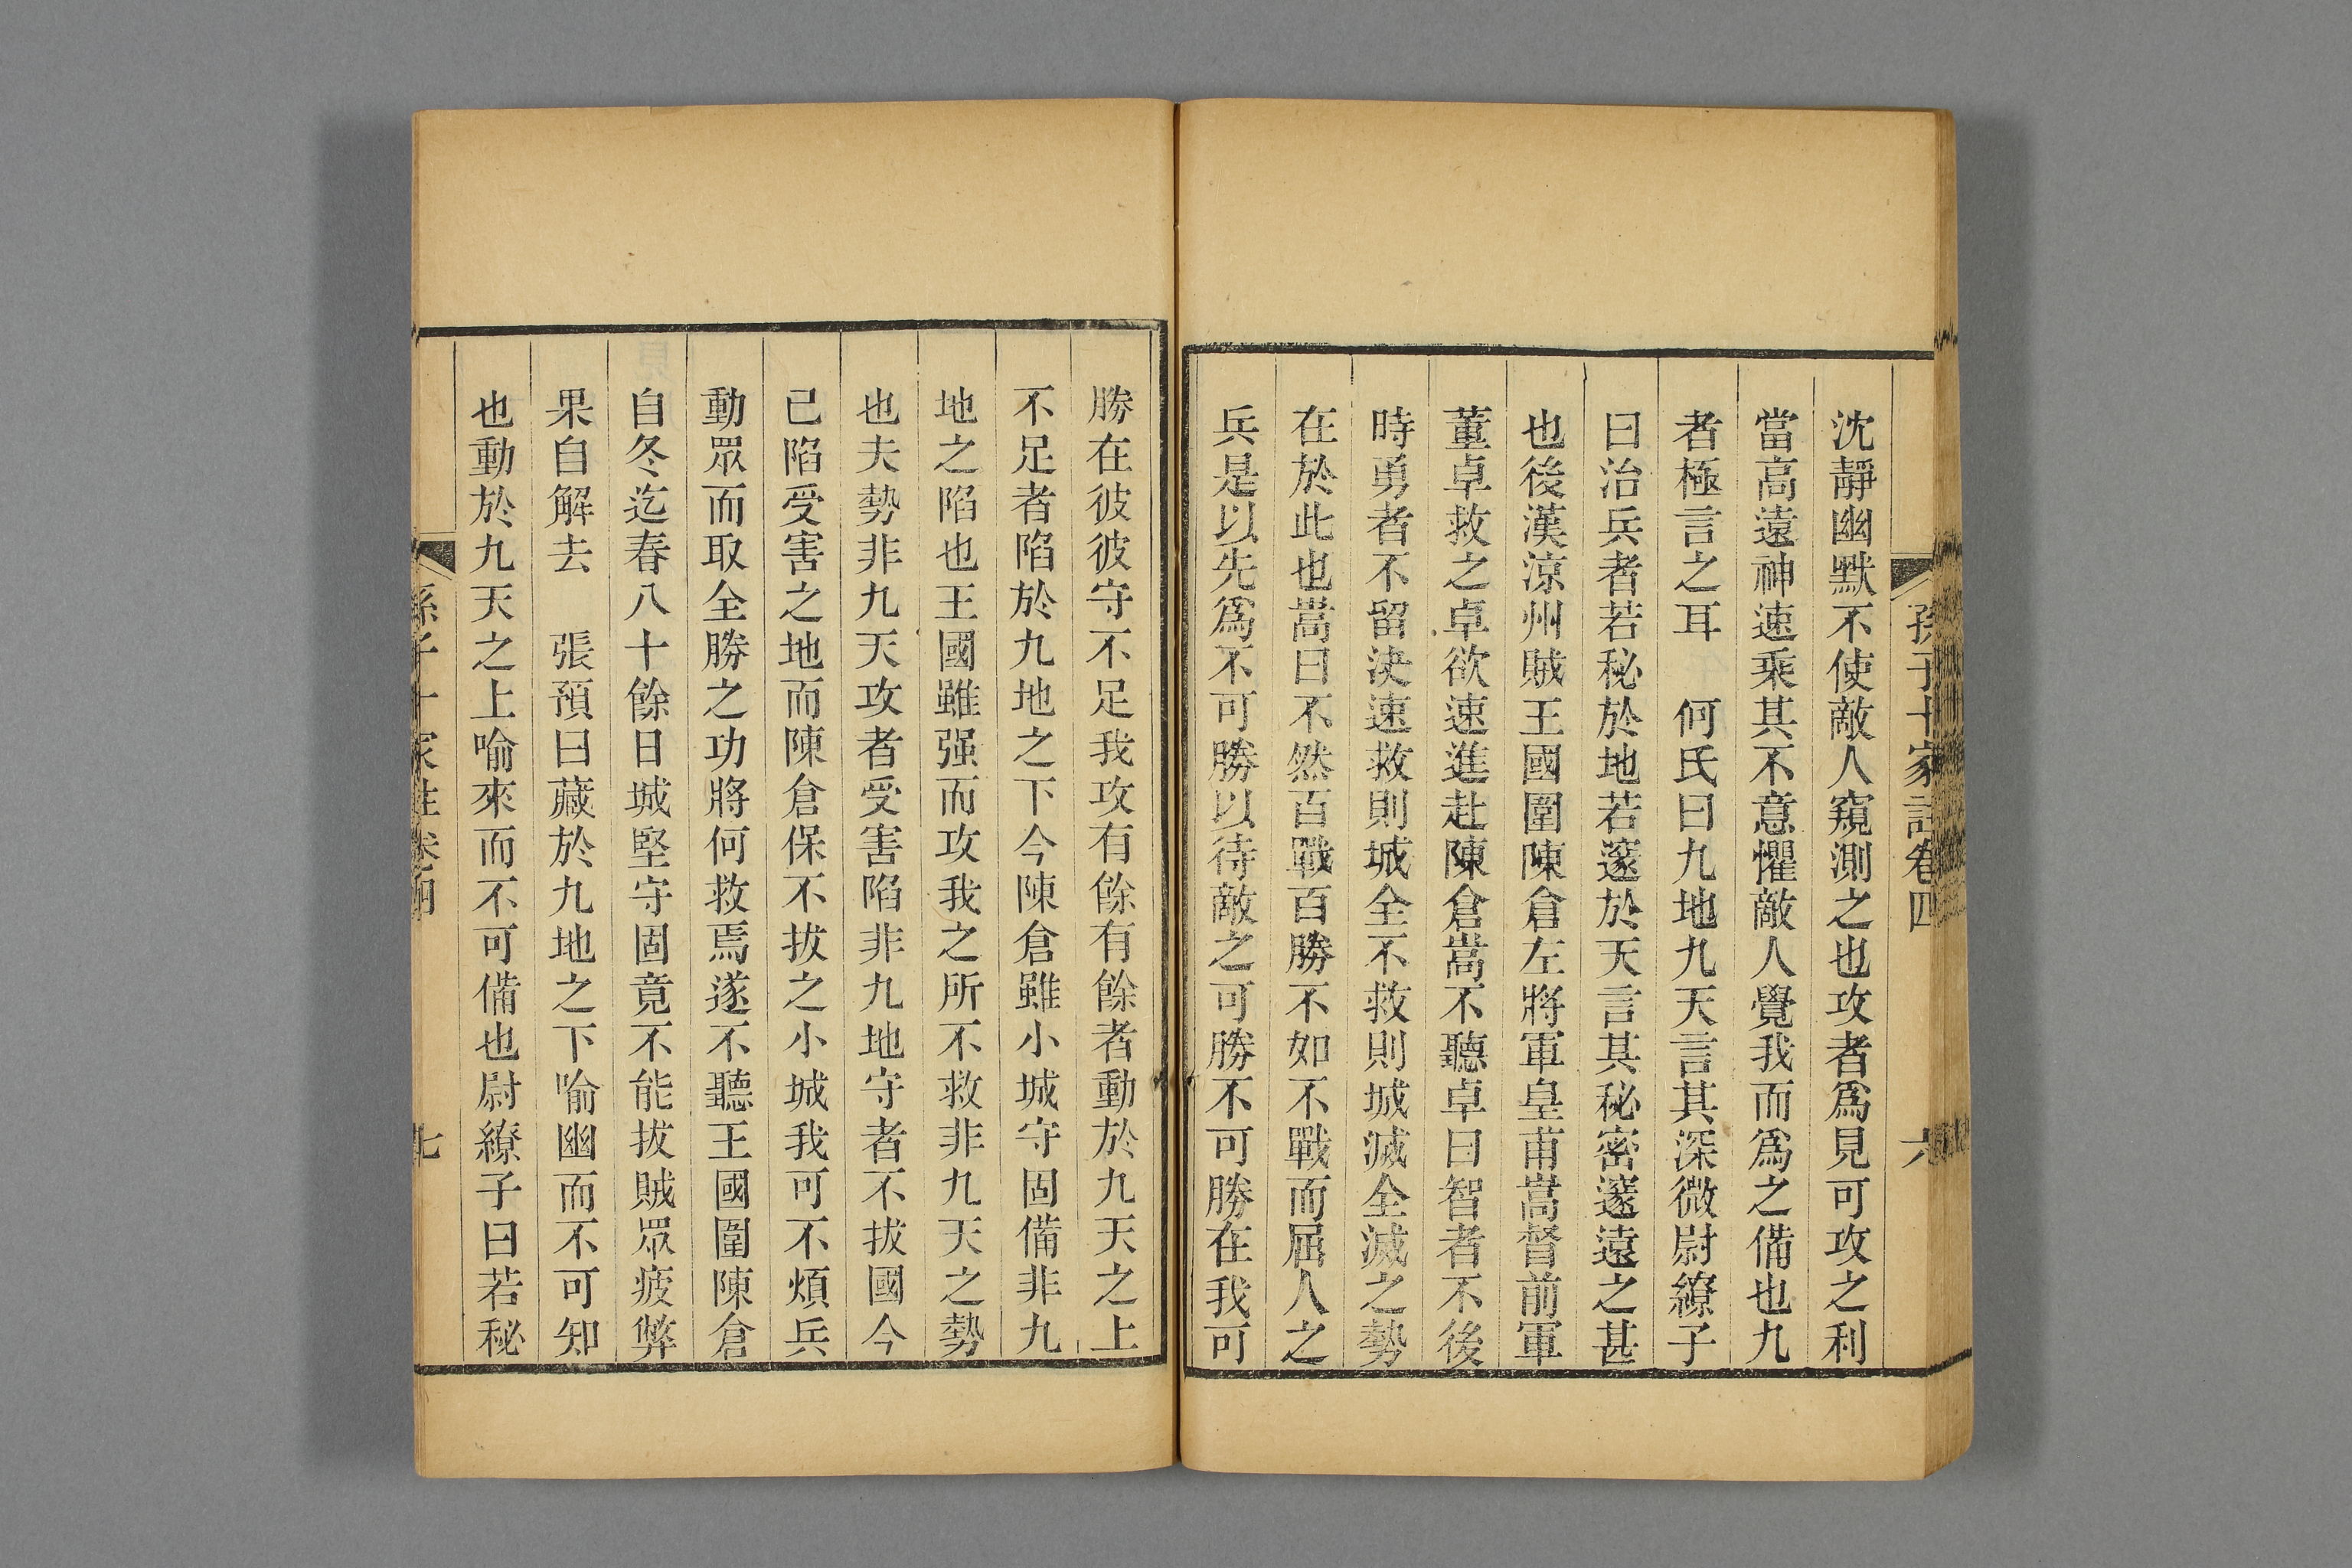 孫子十家註卷四 六
沈靜幽默不使敵人窺測之也攻者爲見可攻之利
當高遠神速乘其不意懼敵人覺我而爲之備也九
者極言之耳　何氏曰九地九天言其深微尉繚子
曰治兵者若秘於地若邃於天言其秘密邃遠之甚
也後漢涼州賊王國圍陳倉左將軍皇甫嵩督前軍
董卓救之卓欲速進赴陳倉嵩不聽卓曰智者不後
時勇者不留決速救則城全不救則城滅全滅之勢
在於此也嵩曰不然百戰百勝不如不戰而屈人之
兵是以先爲不可勝以待敵之可勝不可勝在我可
勝在彼彼守不足我攻有餘有餘者動於九天之上
不足者陷於九地之下今陳倉雖小城守固備非九
地之陷也王國雖强而攻我之所不救非九天之勢
也夫勢非九天攻者受害陷非九地守者不拔國今
已陷受害之地而陳倉保不拔之小城我可不煩兵
動眾而取全勝之功將何救焉遂不聽王國圍陳倉
自冬迄春八十餘日城堅守固竟不能拔賊眾疲弊
果自解去　張預曰藏於九地之下喻幽而不可知
也動於九天之上喻來而不可備也尉繚子曰若秘
孫子十家註卷四 七